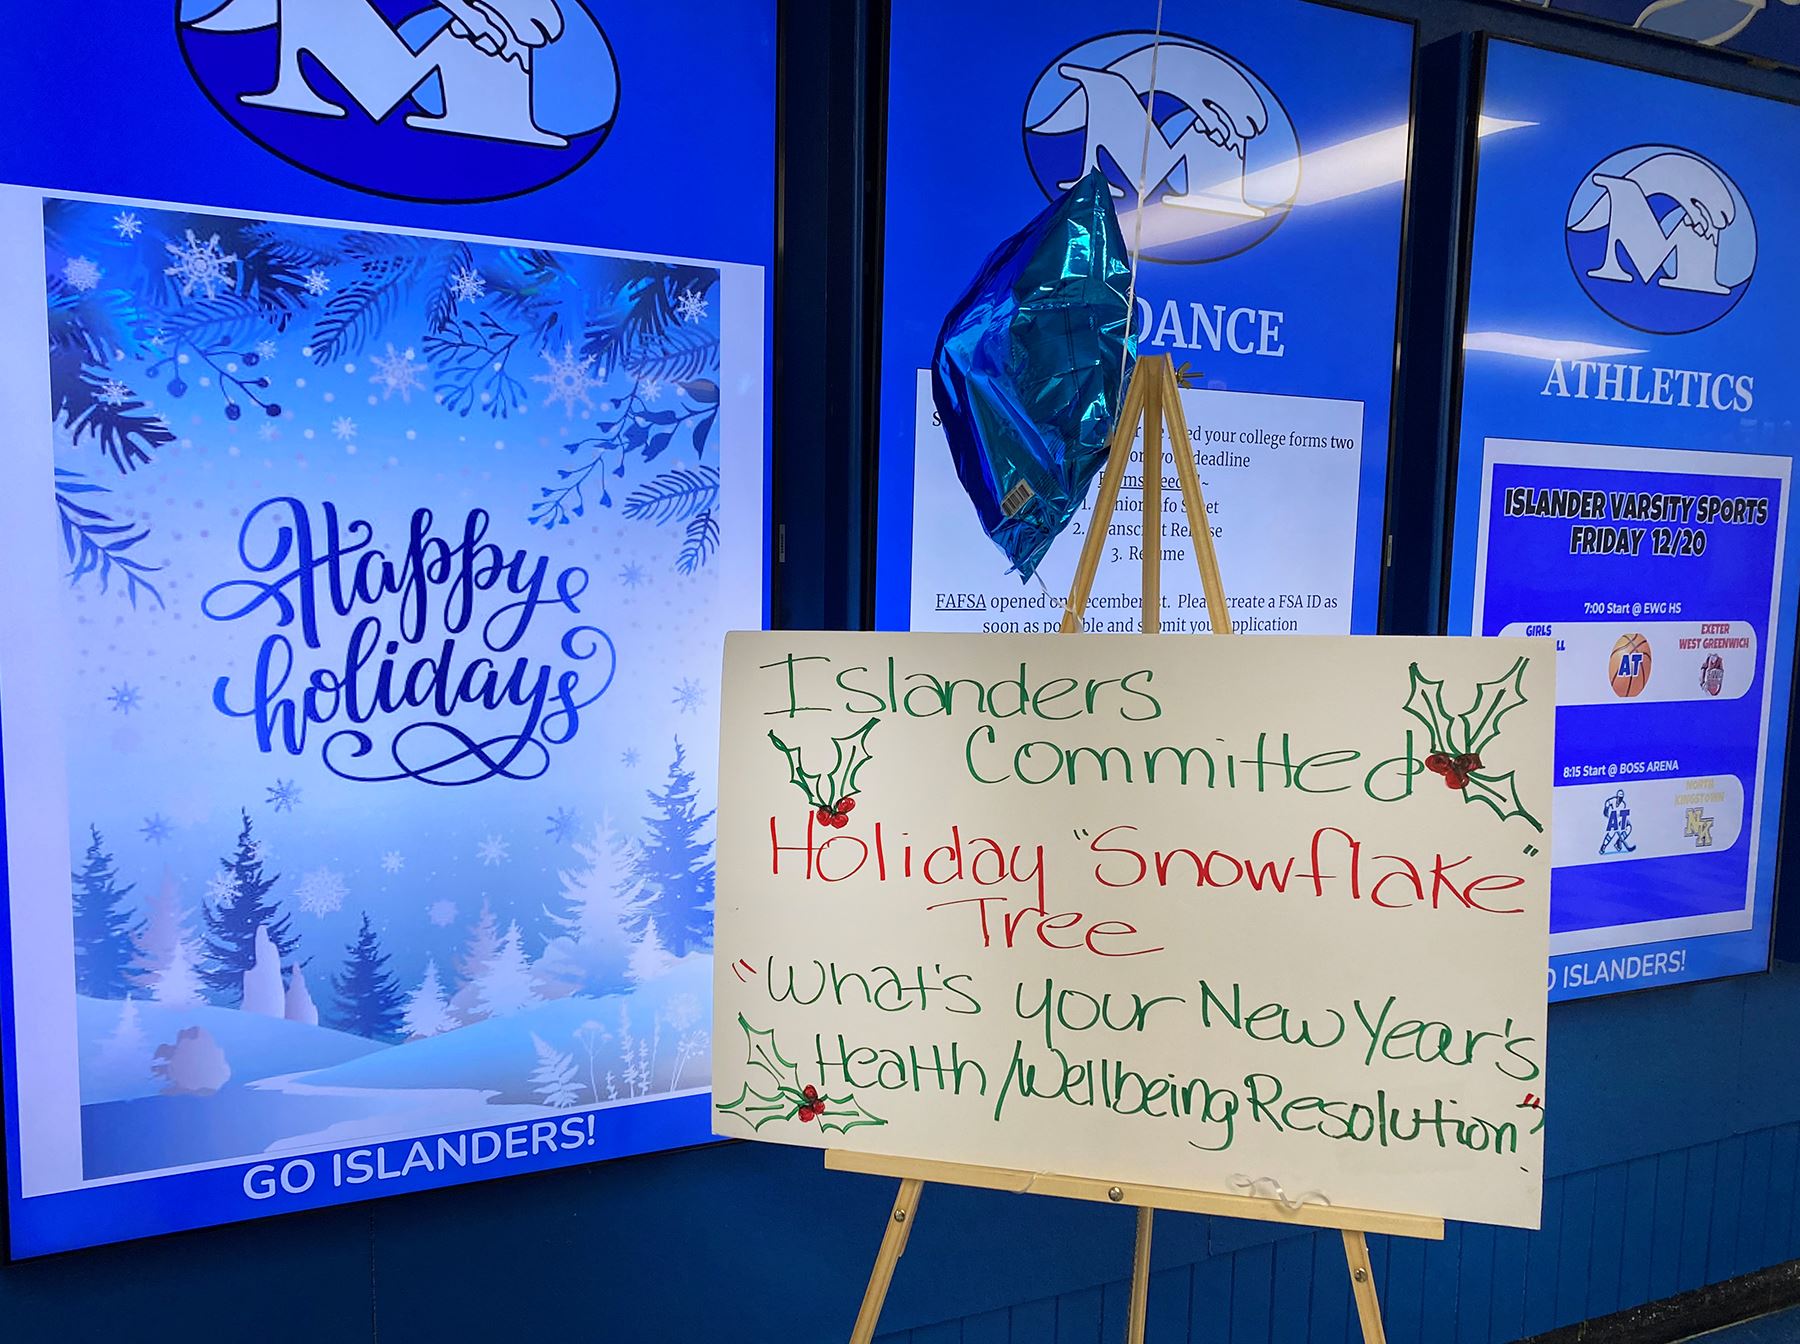 M
Happy
holidays
GO ISLANDERS!
M
DANCE
ed your college forms two
deadline
1.
2.
3.
FAFSA opened create a FSA ID as
soon as and application
M
ATHLETICS
ISLANDER VARSITY SPORTS
FRIDAY 12/20
7:00 Start @ EWG HS
GIRLS
AT
EXETER
WEST GREENWICH
8:15 Start @ BOSS ARENA
AT
NORTH
KINGSTOWN
NK
ISLANDERS!
Islanders
Committed
Holiday "Snowflake"
Tree
"What's your New Year's
Health/Wellbeing Resolution"